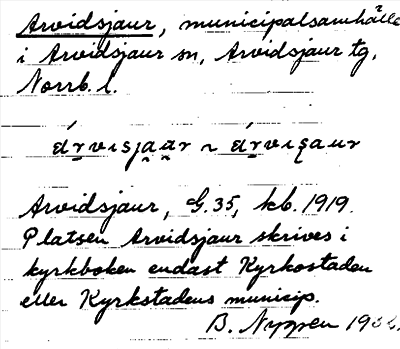 Arvidsjaur, municipalsamhälle
i Arvidsjaur sn, Arvidsjaur tg,
Norrb. l.
árvisjaar ~ árvisaur
Arvidsjaur, G. 35, kb. 1919.
Platsen Arvidsjaur skrives i
kyrkboken endast Kyrkostaden
eller Kyrkstadens municip.
B. Nyppen